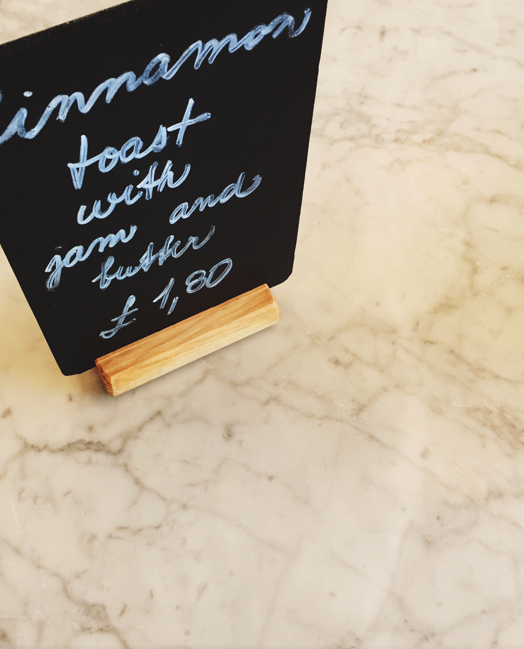 Cinnamon
toast
with
jam and
butter
£ 1,80